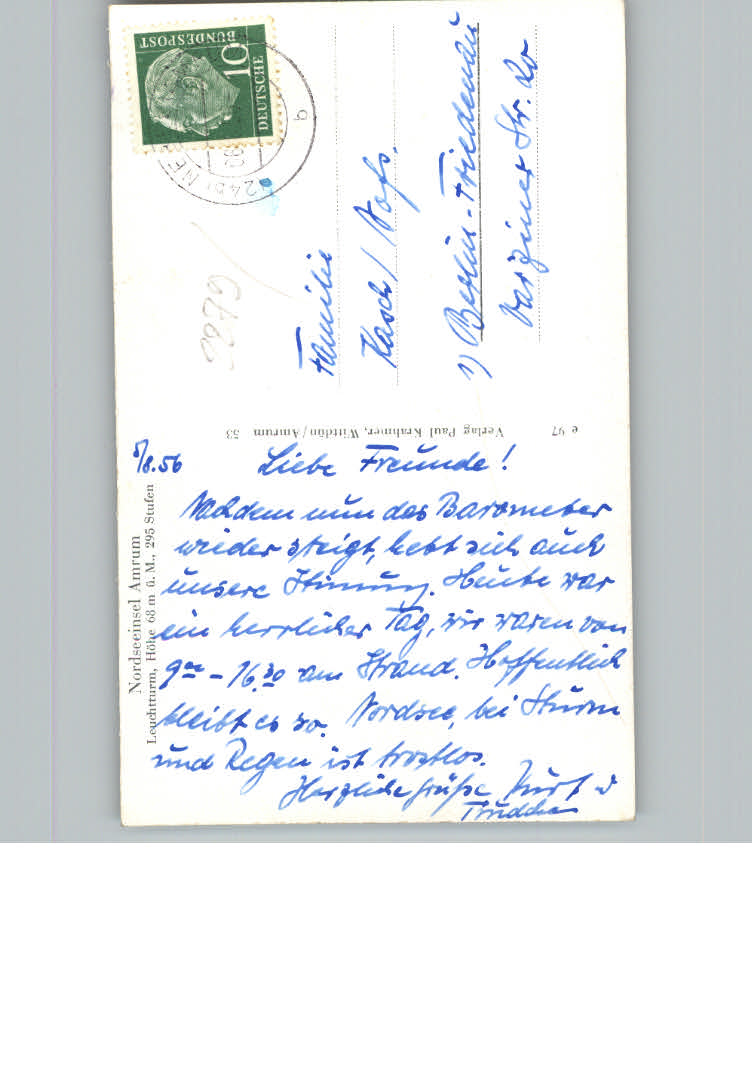 BUNDESPOST
10
DEUTSCHE
24b
b
Familie
1) Berlin-Friedenau
Varziner Str. 20
e 97
Verlag Paul Krahmer, Wittdün/Amrum 53
Nordseeinsel Amrum
Leuchtturm, Höhe 68 m ü. M., 295 Stufen
5/8.56
Liebe Freunde!
Nachdem nun das Barometer
wieder steigt, hebt sich auch
unsere Stimmung. Heute war
ein herrlicher Tag, wir waren von
9⁰⁰ - 16.30 am Strand. Hoffentlich
bleibt es so. Nordsee, bei Sturm
und Regen ist trostlos.
Herzliche Grüße Kurt u
Trudchen